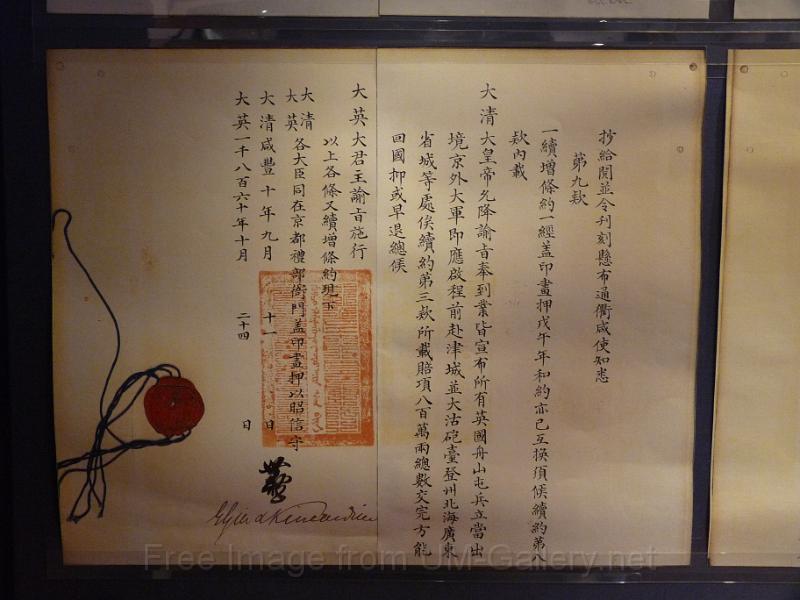 抄給閱並令刊刻懸布通衢咸使知悉
第九款
一續增條約一經蓋印畫押戊午年和約亦已互換須候續約第八
款內載
大清大皇帝允降諭旨奉到業皆宣布所有英國舟山屯兵立當出
境京外大軍即應啟程前赴津城並大沽砲臺登州北海廣東
省城等處俟續約第三款所載賠項八百萬兩總數交完方能
回國抑或早退總候
大英大君主諭旨施行
以上各條又續增條約現下
大清
大英各大臣同在京都禮部衙門蓋印畫押以昭信守
大清咸豐十年九月十一日
大英一千八百六十年十月二十四日
Elgin & Kincardine
Free Image from UM-Gallery.net